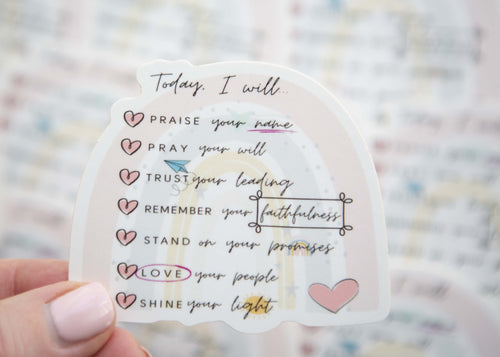 Today, I will...
PRAISE your name
PRAY your will
TRUST your leading
REMEMBER your faithfulness
STAND on your promises
LOVE your people
SHINE your light